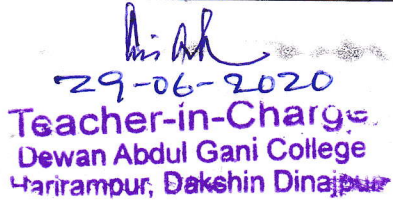 29-06-2020
Teacher-in-Charge
Dewan Abdul Gani College
Harirampur, Dakshin Dinajpur